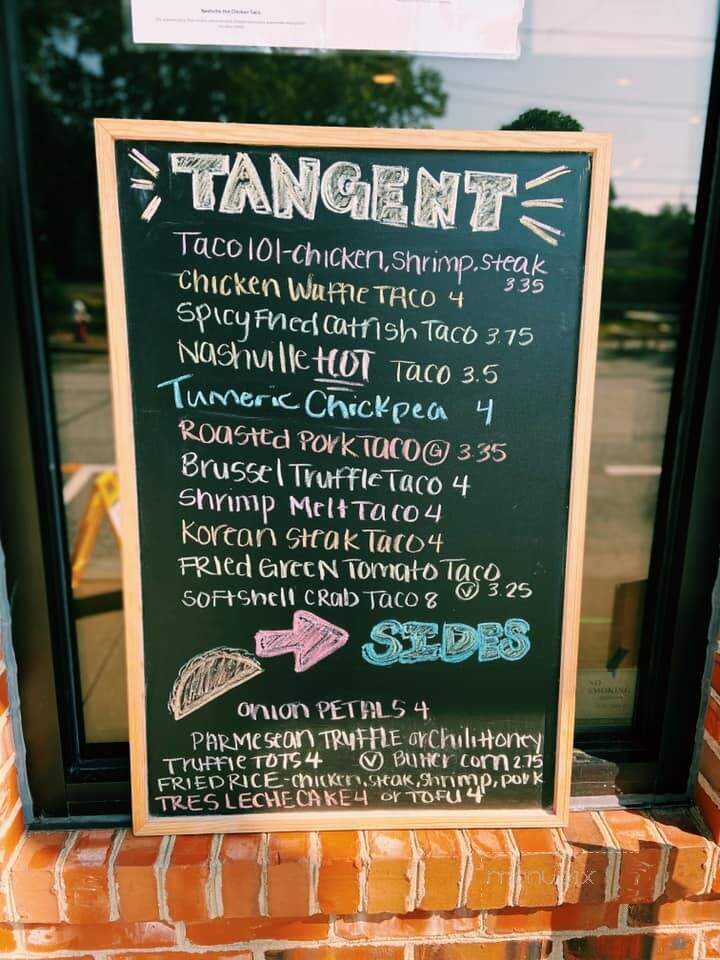 Nashville Hot Chicken Taco
TANGENT
Taco 101-chicken, shrimp, steak
3.35
Chicken Waffle TACO 4
Spicy Fried Catfish Taco 3.75
Nashville HOT Taco 3.5
Tumeric Chickpea 4
Roasted Pork TACO G 3.35
Brussel Truffle Taco 4
Shrimp Melt Taco 4
Korean Steak Taco 4
FRied GReeN Tomato Taco
V 3.25
SOFTshell CRab Taco 8
SIDES
Onion PETALS 4
PARMesean TRUFFLE or Chili Honey
TRUFFle TOTS 4 V Butter Corn 2.75
FRIED RICE-chicken, steak, shrimp, pork
TRES LECHE CAKE 4 or TOFU 4
NO
SMOKING
menupix